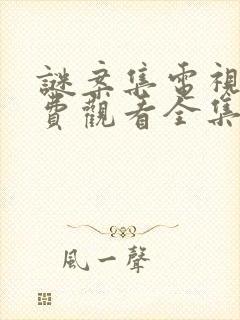 謎案集電視
費觀看全集
風一聲